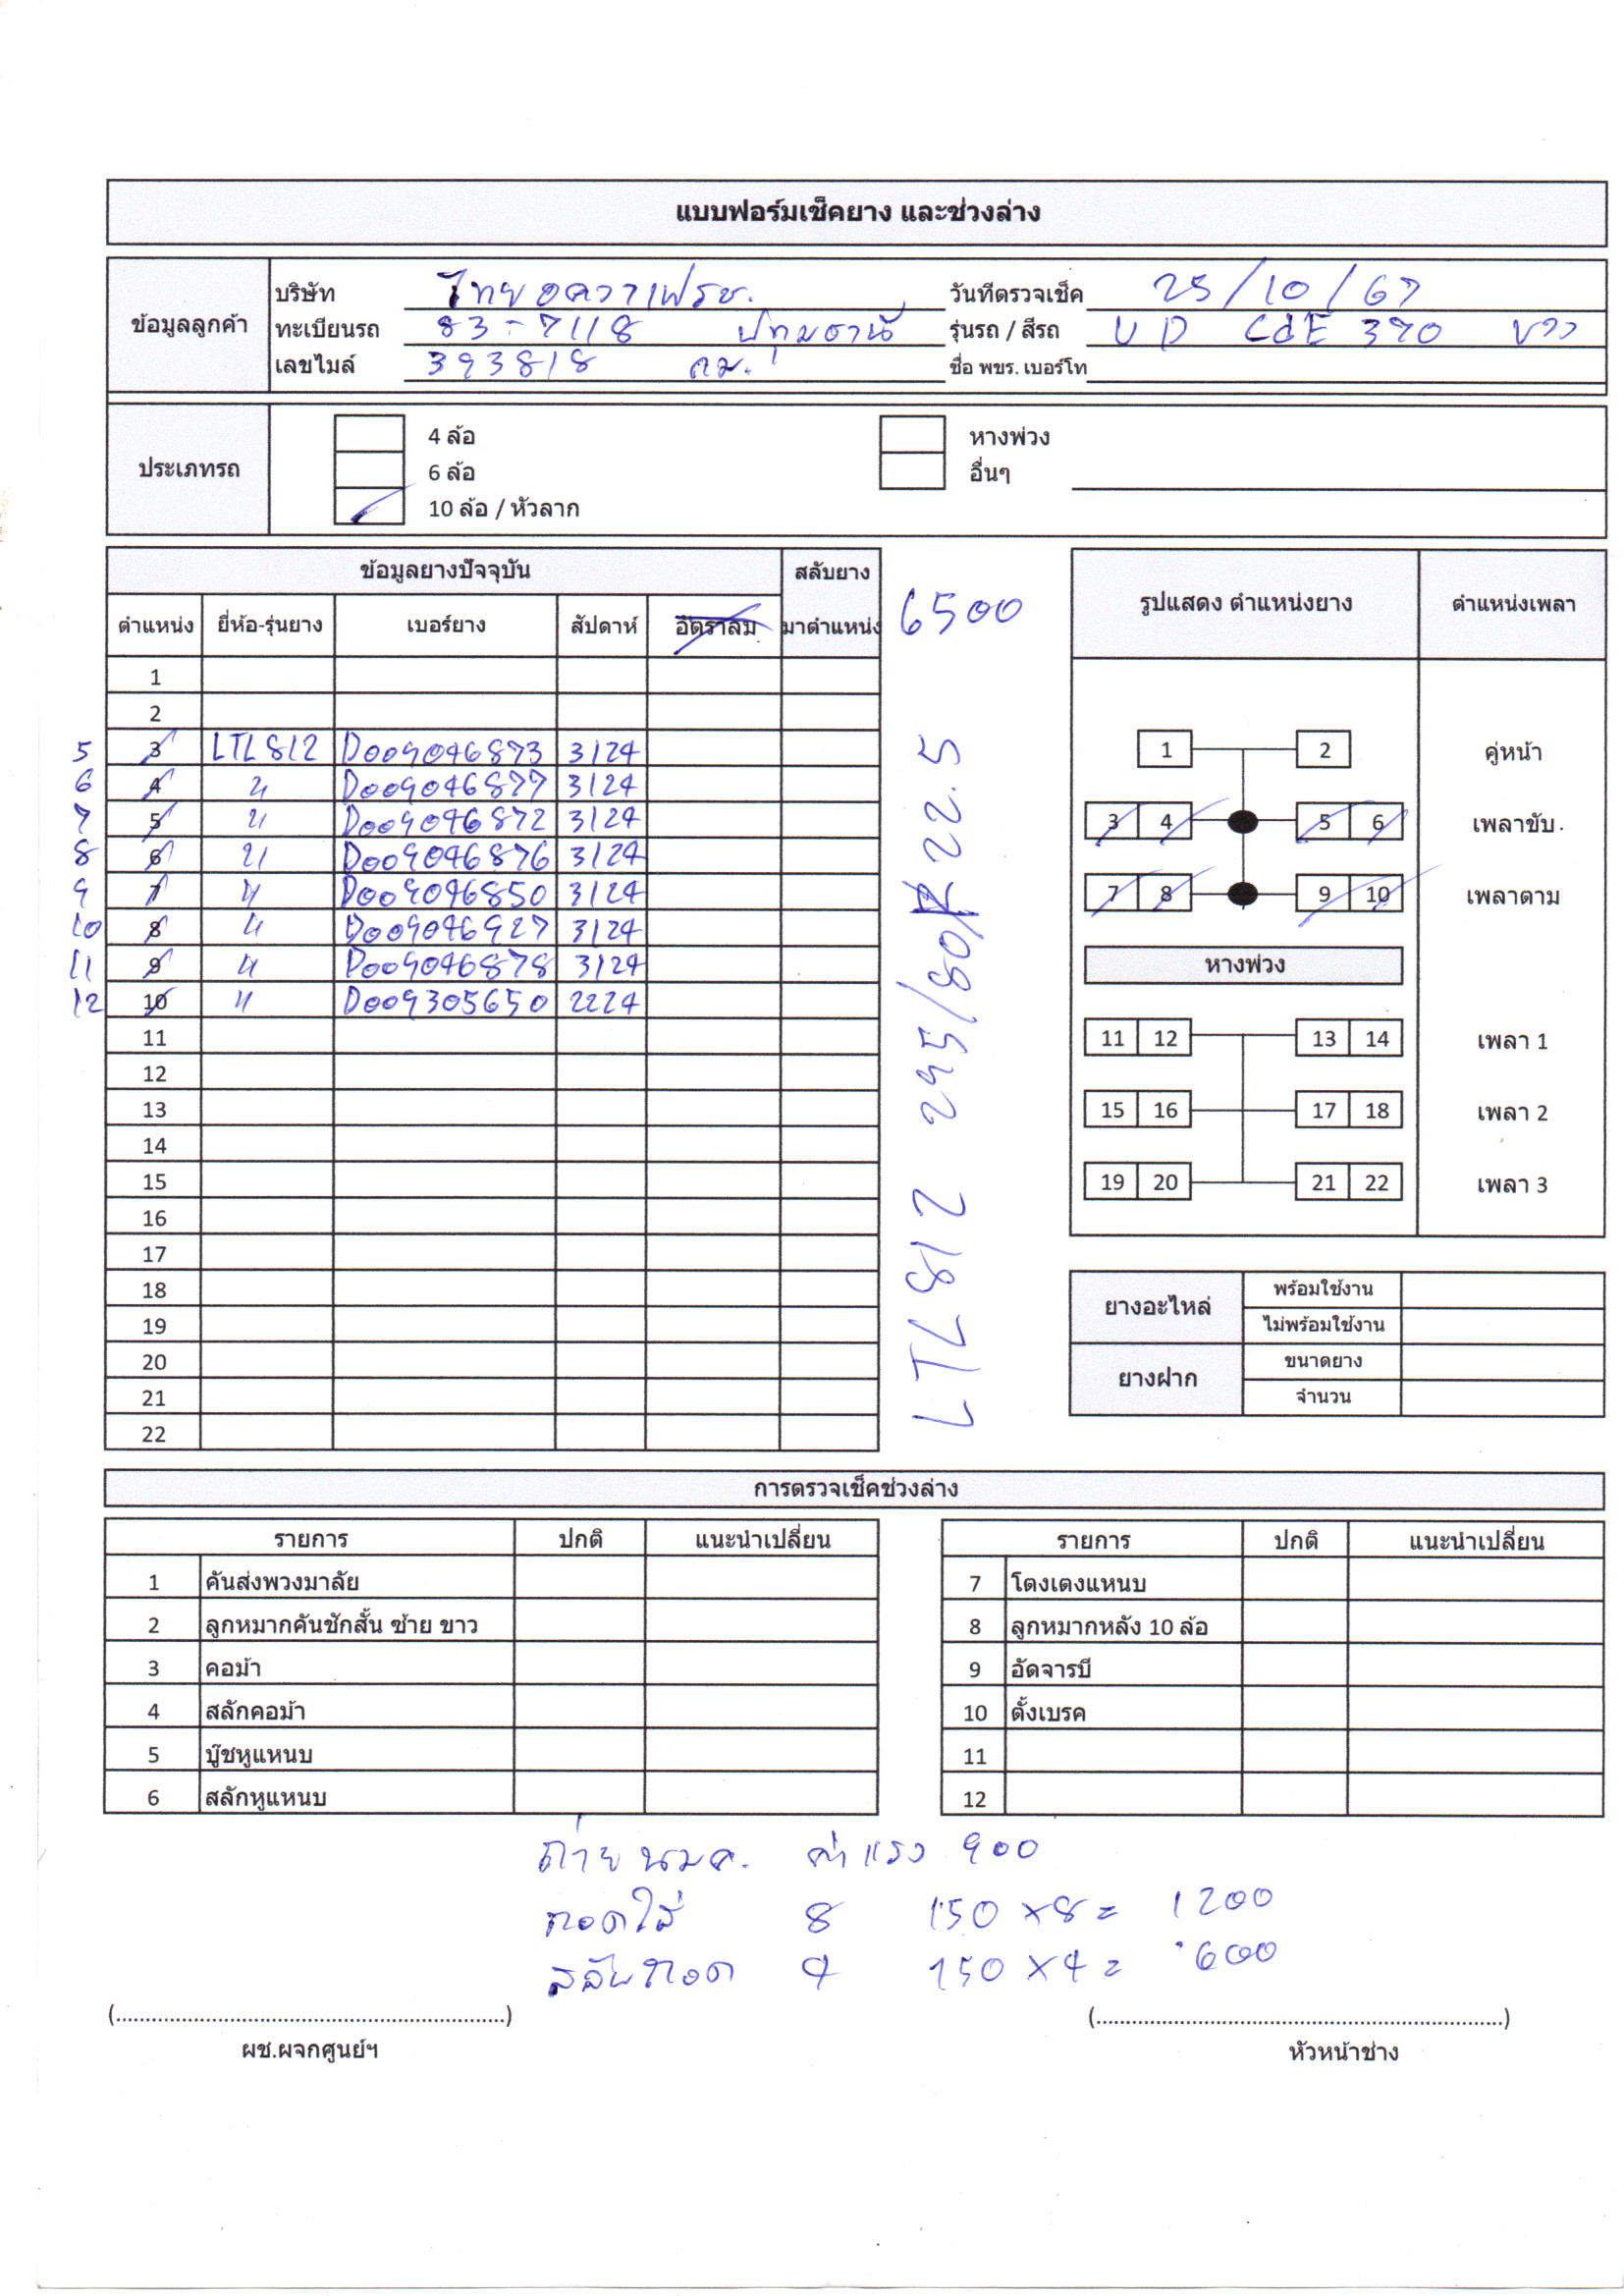 แบบฟอร์มเช็คยาง และช่วงล่าง
ข้อมูลลูกค้า
บริษัท ไทยอควาเฟรช. วันที่ตรวจเช็ค 25/10/67
ทะเบียนรถ 83-7118 ปทุมธานี รุ่นรถ / สีรถ UD CdE 370 ขาว
เลขไมล์ 393818 กม. ชื่อ พขร. เบอร์โท
ประเภทรถ
4 ล้อ หางพ่วง
6 ล้อ อื่นๆ
10 ล้อ / หัวลาก
ข้อมูลยางปัจจุบัน สลับยาง
ตำแหน่ง ยี่ห้อ-รุ่นยาง เบอร์ยาง สัปดาห์ อัตราลม มาตำแหน่ง
1
2
5 3 LTL812 D009046873 3124
6 4 " D009046877 3124
7 5 " D009046872 3124
8 6 " D009046876 3124
9 7 " D009046850 3124
10 8 " D009046927 3124
11 9 " D009046878 3124
12 10 " D009305650 2224
11
12
13
14
15
16
17
18
19
20
21
22
6500
LTL812 295/80R22.5
รูปแสดง ตำแหน่งยาง ตำแหน่งเพลา
1 2 คู่หน้า
3 4 5 6 เพลาขับ
7 8 9 10 เพลาตาม
หางพ่วง
11 12 13 14 เพลา 1
15 16 17 18 เพลา 2
19 20 21 22 เพลา 3
ยางอะไหล่ พร้อมใช้งาน
ไม่พร้อมใช้งาน
ยางฝาก ขนาดยาง
จำนวน
การตรวจเช็คช่วงล่าง
รายการ ปกติ แนะนำเปลี่ยน รายการ ปกติ แนะนำเปลี่ยน
1 คันส่งพวงมาลัย 7 โตงเตงแหนบ
2 ลูกหมากคันชักสั้น ซ้าย ขาว 8 ลูกหมากหลัง 10 ล้อ
3 คอม้า 9 อัดจารบี
4 สลักคอม้า 10 ตั้งเบรค
5 บู๊ชหูแหนบ 11
6 สลักหูแหนบ 12
ถ่าย นมค. ค่าแรง 900
ถอดใส่ 8 150 x8 = 1200
สลับถอด 4 150 x4 = 600
(................................) (................................)
ผช.ผจกศูนย์ฯ หัวหน้าช่าง